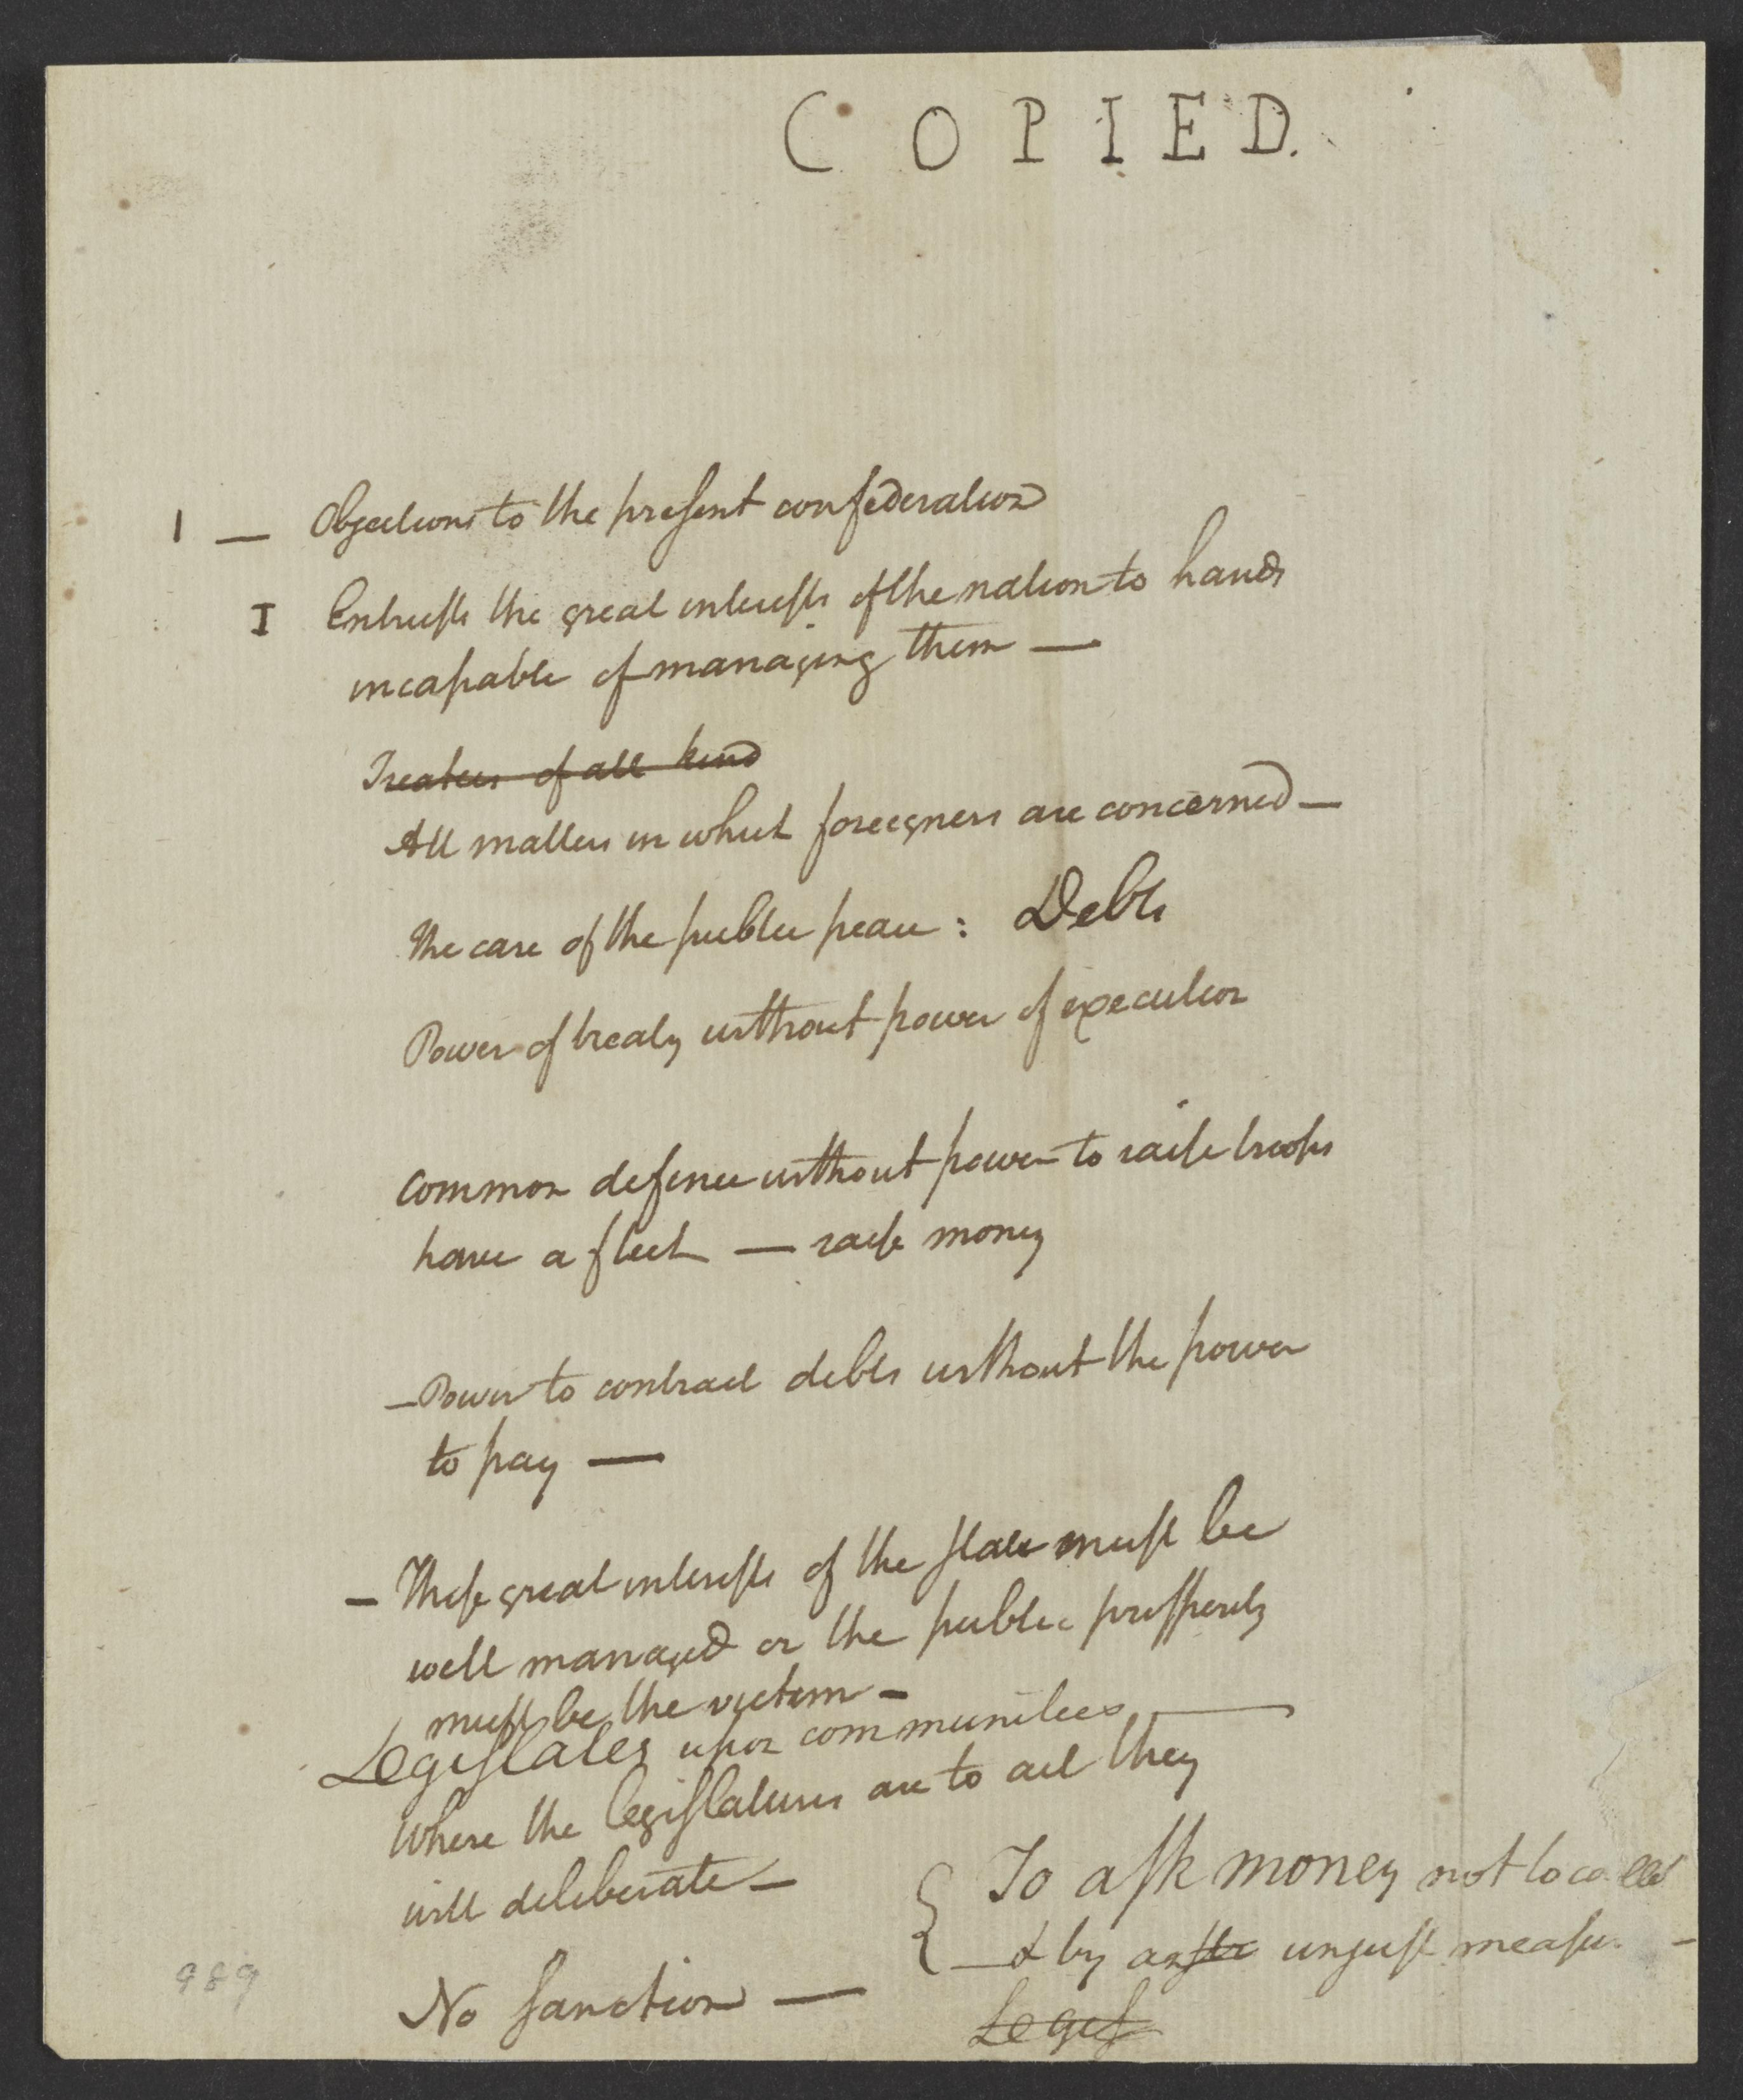 COPIED.
1 — Objections to the present confederation
I Entrusts the great interests of the nation to hands
incapable of managing them —
Treaties of all kind
All matters in which foreigners are concerned —
The care of the public peace : Debts
Power of treaty without power of execution
Common defence without power to raise troops
have a fleet — raise money
— Power to contract debts without the power
to pay —
— These great interests of the state must be
well managed or the public prosperity
must be the victim —
Legislates upon communities —
Where the legislatures are to act they
will deliberate —
To ask money not to collect
& by an unjust measure —
No sanction —
Legis
989